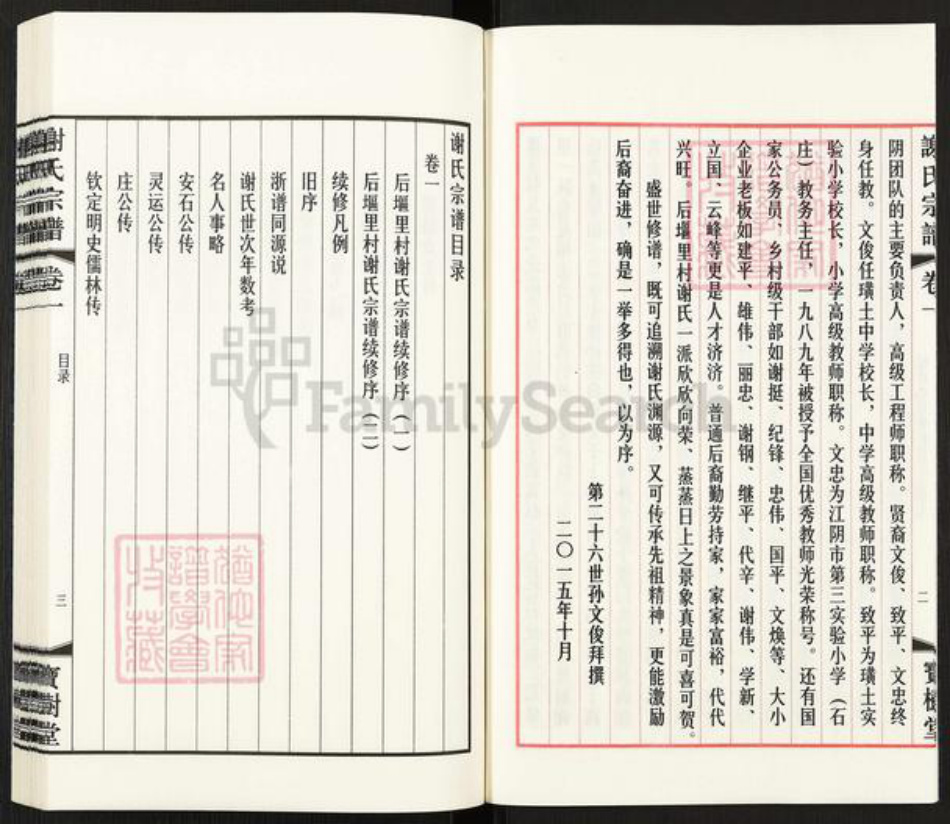 谢氏宗谱 卷一
二
寶樹堂
阴团队的主要负责人，高级工程师职称。贤裔文俊、致平、文忠终
身任教。文俊任璜土中学校长，中学高级教师职称。致平为璜土实
验小学校长，小学高级教师职称。文忠为江阴市第三实验小学（石
庄）教务主任，一九八九年被授予全国优秀教师光荣称号。还有国
家公务员、乡村级干部如谢挺、纪锋、忠伟、国平、文焕等、大小
企业老板如建平、雄伟、丽忠、谢钢、继平、代辛、谢伟、学新、
立国、云峰等更是人才济济。普通后裔勤劳持家，家家富裕，代代
兴旺。后堰里村谢氏一派欣欣向荣、蒸蒸日上之景象真是可喜可贺。
盛世修谱，既可追溯谢氏渊源，又可传承先祖精神，更能激励
后裔奋进，确是一举多得也，以为序。
第二十六世孙文俊拜撰
二〇一五年十月
谢氏宗谱目录
卷一
后堰里村谢氏宗谱续修序（一）
后堰里村谢氏宗谱续修序（二）
续修凡例
旧序
浙谱同源说
谢氏世次年数考
名人事略
安石公传
灵运公传
庄公传
钦定明史儒林传
謝氏宗譜 卷一
目录
三
寶樹堂
FamilySearch